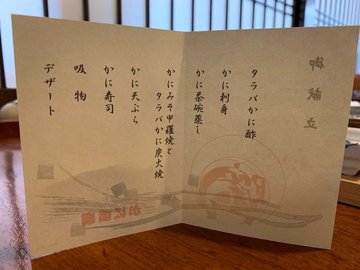 御献立
タラバかに酢
かに刺身
かに茶碗蒸し
かにみそ甲羅焼と
タラバかに炭火焼
かに天ぷら
かに寿司
吸物
デザート